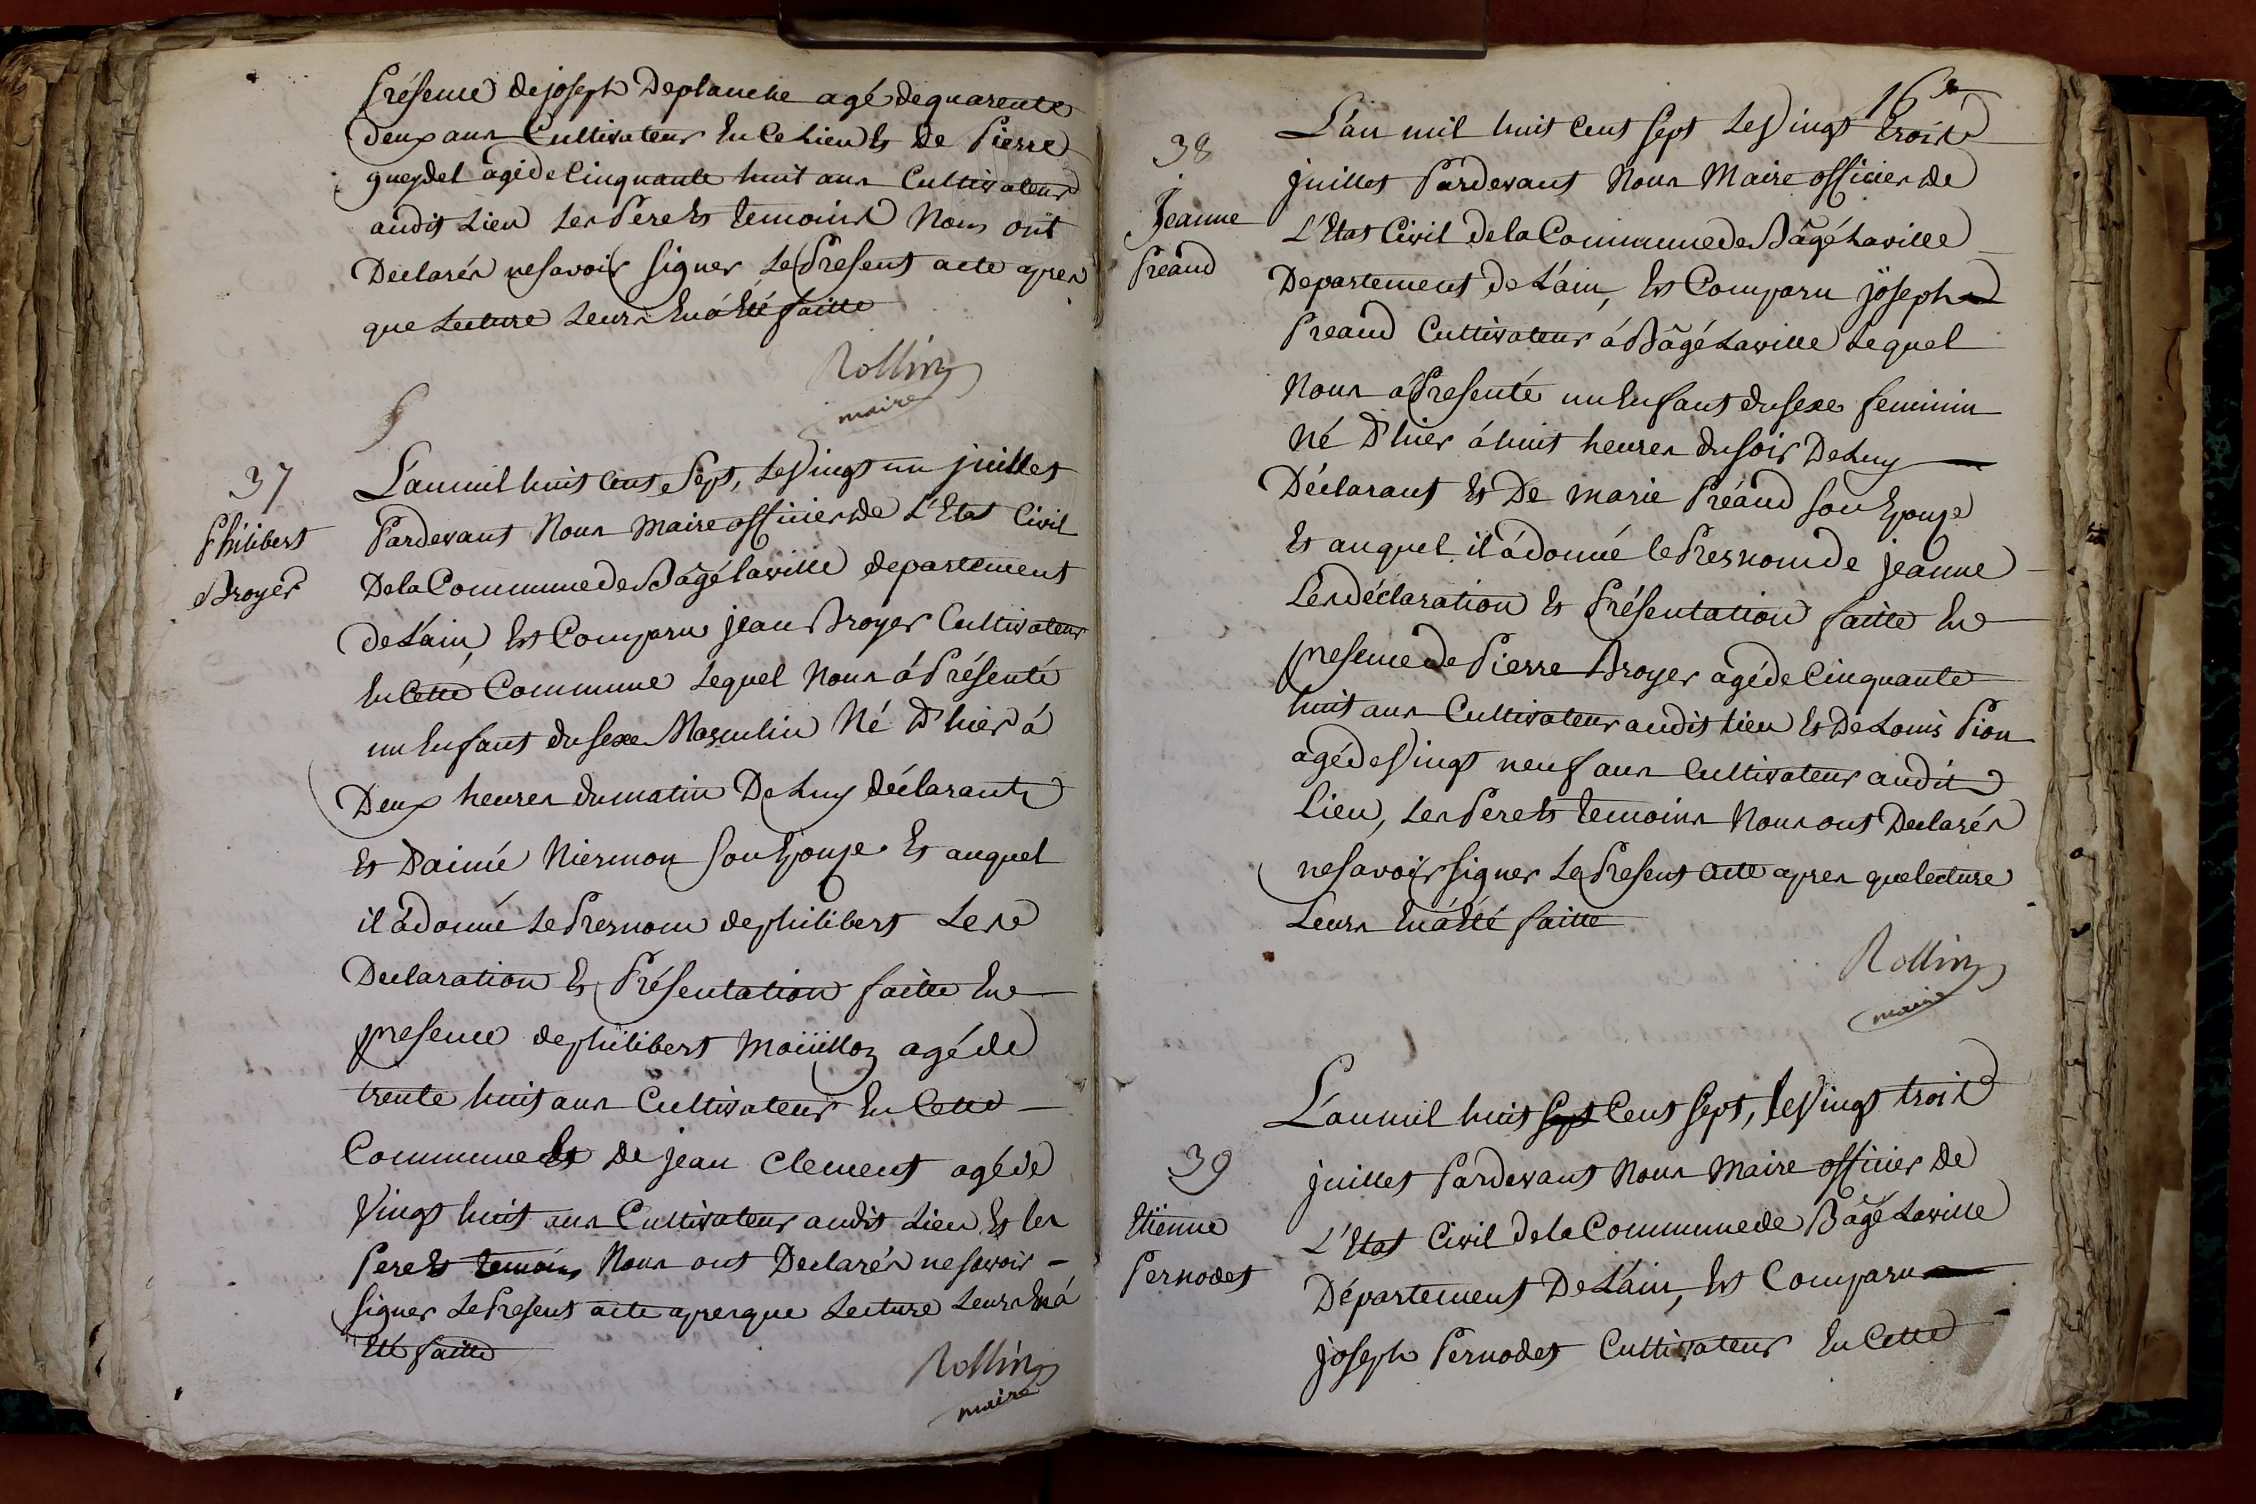 Présence de joseph Deplanche agé de quarente
deux ans Cultivateur En Ce Lieu Et De Pierre
gueydel agé de Cinquante huit ans Cultivateur
audit Lieu Les Pere Et temoins Nous ont
Declarés ne savoir signer Le Present acte apres
que Lecture Leurs En á Eté faitte
Rollin
maire
37
Philibert
Broyer
L'an mil huit cent Sept, Le Vingt un juillet
Pardevant Nous Maire officier de L'Etat Civil
De la Commune de Bâgé Laville departement
de L'ain, Est Comparu jean Broyer Cultivateur
En Cette Commune Lequel Nous á Présenté
un Enfant du Sexe Masculin Né D'hier á
Deux heures du matin De Luy déclarant
Et D'aimé Niermon Son Epouse Et auquel
il á donné Le Presnom de philibert Les
Declaration Et Présentation faitte En
presence de philibert Moüillon agé de
trente huit ans Cultivateur En Cette
Commune Et De jean Clement agé de
Vingt huit ans Cultivateur audit Lieu Et les
Pere Et temoins Nous ont Declarés ne savoir
signer Le Present acte apres que Lecture Leurs En á
Eté faitte
Rollin
maire
16e
38
Jeanne
Preaud
L'an mil huit Cent sept Le Vingt trois
juillet Pardevant Nous Maire officier de
L'Etat Civil de la Commune de Bâgé Laville
Departement de L'ain, Est Comparu joseph
Preaud Cultivateur á Bâgé Laville Lequel
Nous á Presenté un Enfant du sexe feminin
Né D'hier á huit heures du soir De Luy
Déclarant Et De marie Préaud son Epouse
Et auquel il á donné le Presnom de jeanne
Les déclaration Et Présentation faitte En
presence de Pierre Broyer agé de Cinquante
huit ans Cultivateur audit Lieu Et De Louis Pion
agé de Vingt neuf ans Cultivateur audit
Lieu, Les Pere Et temoins Nous ont Declarés
ne savoir signer Le Present acte apres que lecture
Leurs En á Eté faitte
Rollin
maire
39
Etiënne
Pernodet
L'an mil huit sept Cent sept, Le Vingt trois
juillet Pardevant Nous Maire officier De
L'Etat Civil de la Commune de Bâgé Laville
Département De L'ain, Est Comparu
joseph Pernodet Cultivateur En Cette